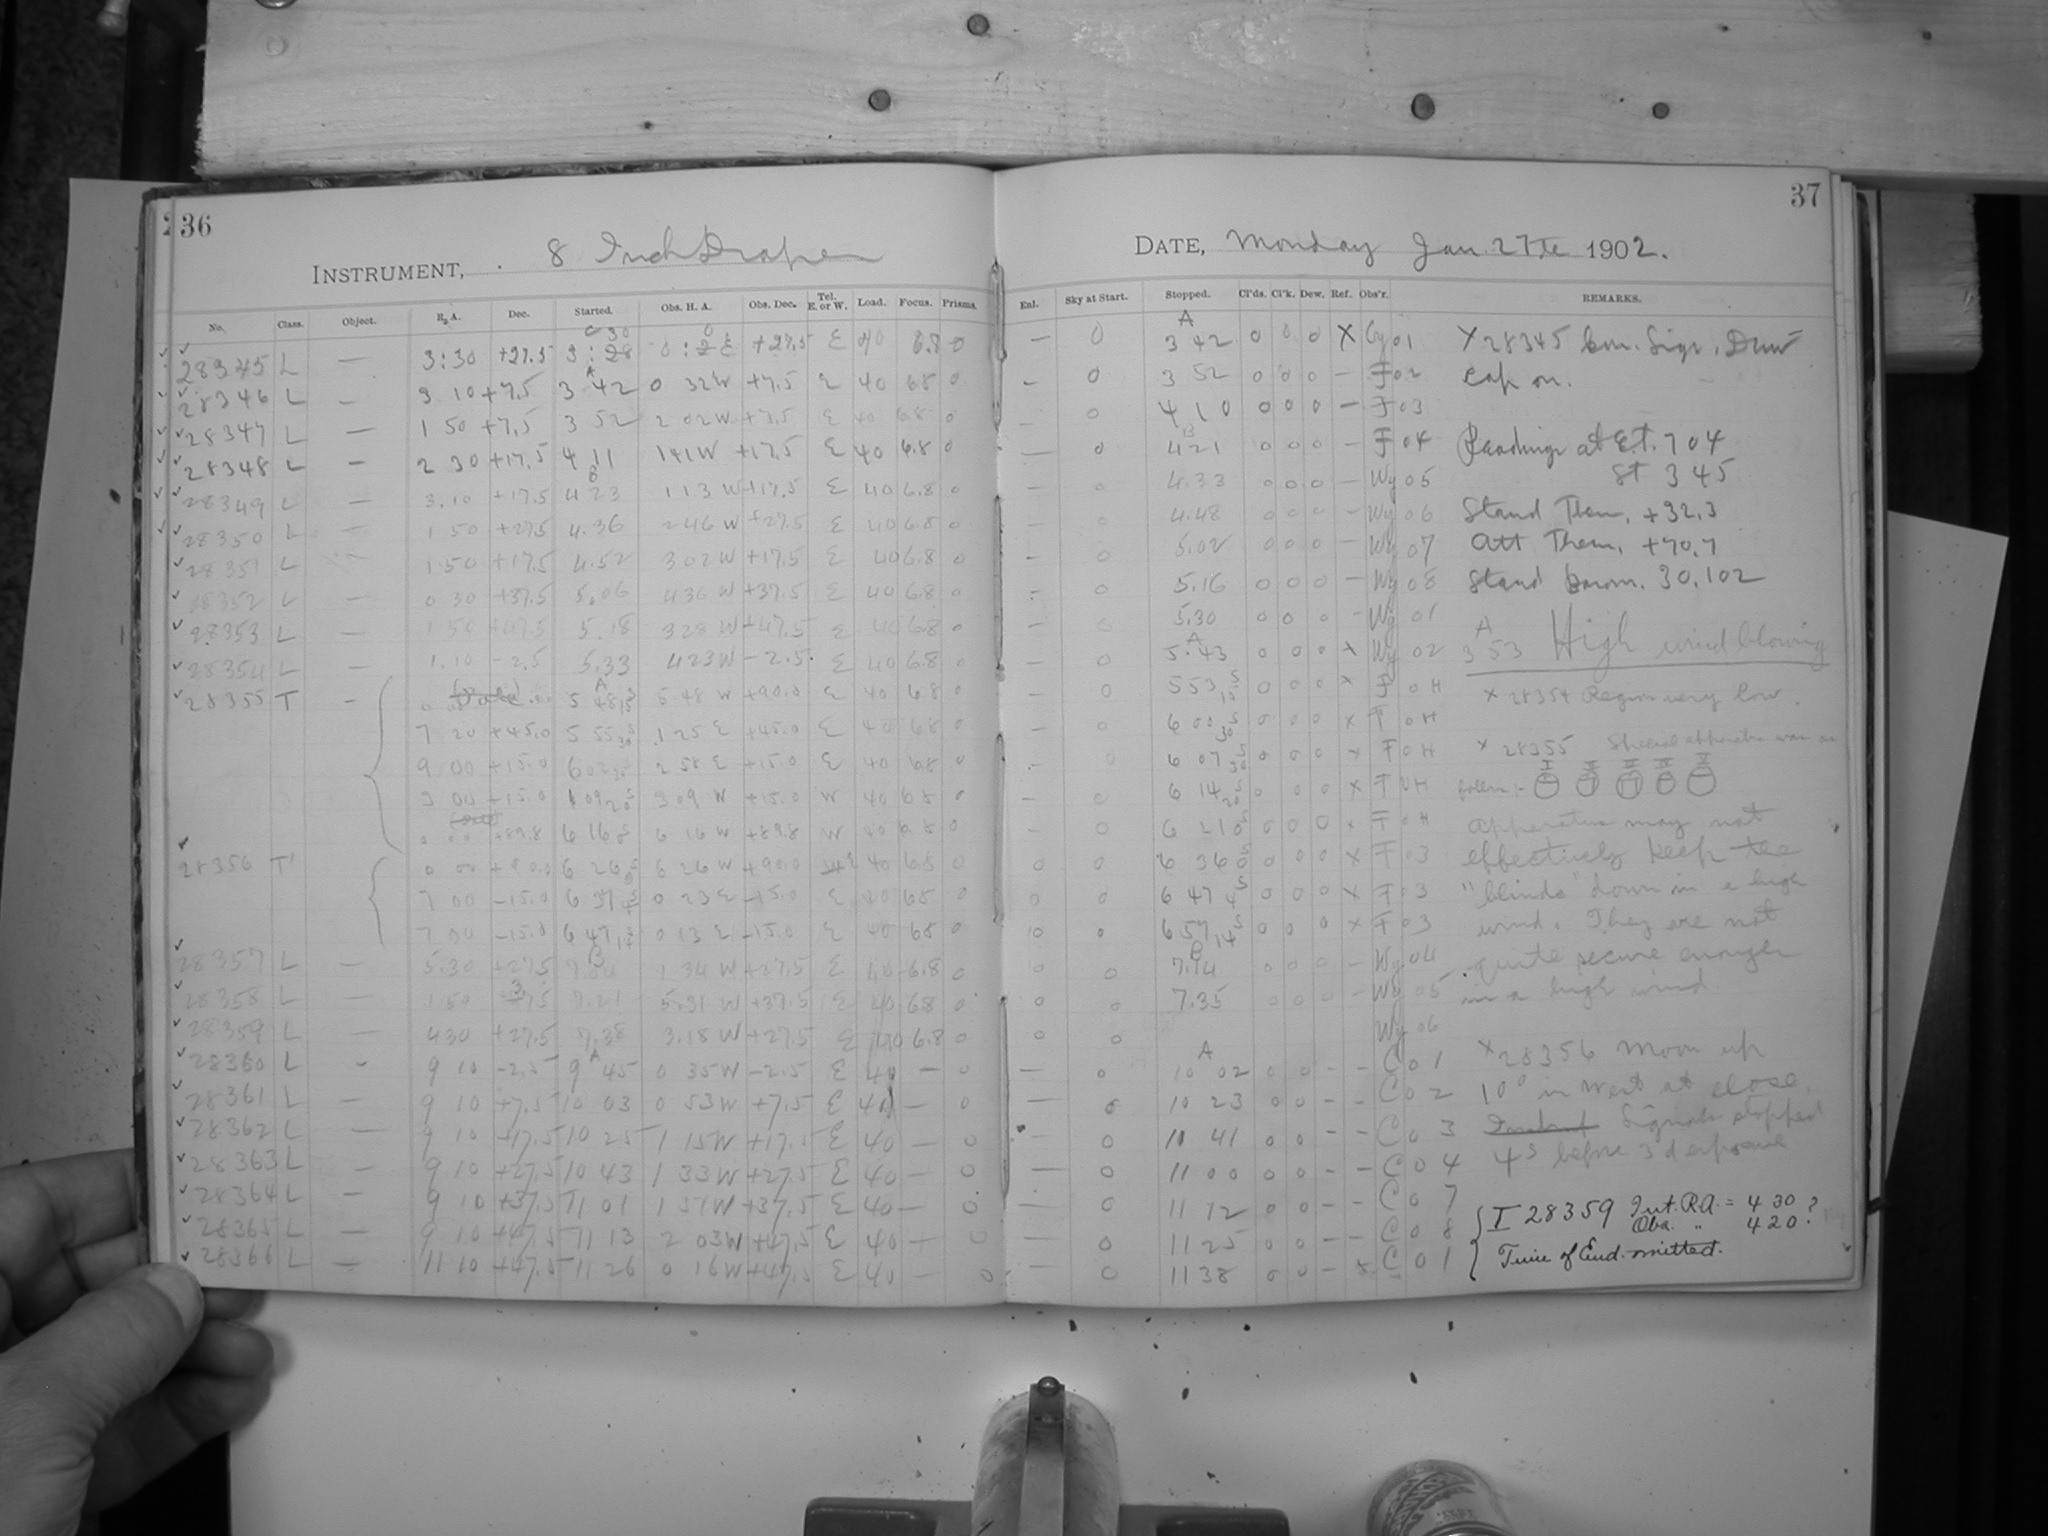 36
INSTRUMENT, 8 Inch Draper
No. Class. Object. R. A. Dec. Started. Obs. H. A. Obs. Dec. Tel. E. or W. Load. Focus. Prisms.
28345 L — 3:30 +27.5 +27.5 E 40 6.8 0
28346 L — 3 10 +7.5 3 42 0 32 W +7.5 E 40 6.8 0
28347 L — 1 50 +7.5 3 52 2 02 W +7.5 E 40 6.8 0
28348 L — 2 30 +17.5 4 11 1 41 W +17.5 E 40 6.8 0
28349 L — 3.10 +17.5 4 23 1 13 W +17.5 E 40 6.8 0
28350 L — 1 50 +27.5 4.36 2 46 W +27.5 E 40 6.8 0
28351 L — 1 50 +17.5 4.52 3 02 W +17.5 E 40 6.8 0
28352 L — 0 30 +37.5 5.06 4 36 W +37.5 E 40 6.8 0
28353 L — 1 50 +47.5 5.18 3 28 W +47.5 E 40 6.8 0
28354 L — 1.10 -2.5 5.33 4 23 W -2.5 E 40 6.8 0
28355 T — 5 48 W +90.0 E 40 6.8 0
7 20 +45.0 5 55 1 25 E +45.0 E 40 6.8 0
9 00 +15.0 2 58 E +15.0 E 40 6.8 0
3 00 +15.0 6 09 3 09 W +15.0 W 40 6.8 0
0 00 +89.8 6 16 6 16 W +89.8 W 40 6.8 0
28356 T 0 00 +90.0 6 26 6 26 W +90.0 E 40 6.8 0
7 00 -15.0 6 37 0 23 E -15.0 E 40 6.8 0
7 00 -15.0 6 47 0 13 E -15.0 E 40 6.8 0
28357 L — 5.30 +27.5 7.04 1 34 W +27.5 E 40 6.8 0
28358 L — 1 50 7.21 5.31 W +37.5 E 40 6.8 0
28359 L — 4 30 +27.5 7.38 3.18 W +27.5 E 40 6.8 0
28360 L — 9 10 -2.5 9 45 0 35 W -2.5 E 40 — 0
28361 L — 9 10 +7.5 10 03 0 53 W +7.5 E 40 — 0
28362 L — 9 10 +17.5 10 25 1 15 W +17.5 E 40 — 0
28363 L — 9 10 +27.5 10 43 1 33 W +27.5 E 40 — 0
28364 L — 9 10 +37.5 11 01 1 51 W +37.5 E 40 — 0
28365 L — 9 10 +47.5 11 13 2 03 W +47.5 E 40 — 0
28366 L — 11 10 +47.5 11 26 0 16 W +47.5 E 40 — 0
37
DATE, Monday Jan. 27th 1902.
Enl. Sky at Start. Stopped. Cl'ds. Cl'k. Dew. Ref. Obs'r. REMARKS.
— 0 3 42 0 0 0 X 01
— 0 3 52 0 0 0 — F 02
0 4 10 0 0 0 — F 03
— 0 4 21 0 0 0 — F 04
0 4.33 0 0 0 — Wy 05
0 4.48 0 0 0 — Wy 06
— 0 5.02 0 0 0 — Wy 07
— 0 5.16 0 0 0 — Wy 08
— 0 5.30 0 0 0 — Wy 01
— 0 5.43 0 0 0 x Wy 02
— 0 5 53 0 0 0 x F 0H
— 0 6 00 0 0 0 x F 0H
— 0 6 07 0 0 0 x F 0H
— 0 6 14 0 0 0 x F 0H
— 0 6 21 0 0 0 x F 0H
0 0 6 36 0 0 0 x F 03
0 0 6 47 0 0 0 x F 03
0 0 6 57 0 0 0 x F 03
0 0 7.14 0 0 0 — Wy 04
0 0 7.35 0 0 0 — Wy 05
0 0 Wy 06
— 0 10 02 0 0 — — C 01
— 0 10 23 0 0 — — C 02
— 0 10 41 0 0 — — C 03
— 0 11 00 0 0 — — C 04
— 0 11 12 0 0 — — C 07
— 0 11 25 0 0 — — C 08
— 0 11 38 0 0 — x C 01
X 28345 Com. Sign. Dew
cap on.
Readings at E.T. 7 04
St 3 45
Stand Them. +32.3
Att Them. +70.7
Stand barom. 30.102
A
3 53 High wind blowing
x 28354 Region very low.
x 28355 Special apparatus was as
follows:- I II III IV V
Apparatus may not
effectively keep the
"blinds" down in a high
wind. They are not
quite secure enough
in a high wind.
x 28356 Moon up
10° in west at close.
Signals stopped
4s before 3d exposure
I 28359 Int. R.A. = 4 30?
Obs. " 4 20?
Time of End omitted.